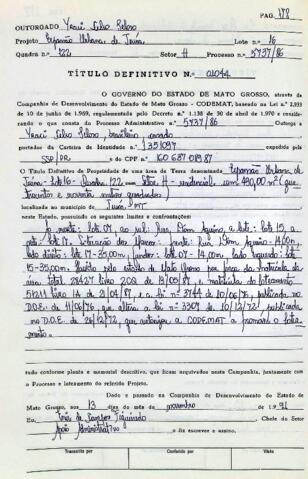 PAG. 178
OUTORGADO
Projeto Expansão Urbana de Juína Lote n.º 16
Quadra n.º 122 Setor H Processo n.º 5737/86
TÍTULO DEFINITIVO N.º 01044
O GOVERNO DO ESTADO DE MATO GROSSO, através da
Companhia de Desenvolvimento do Estado de Mato Grosso - CODEMAT, baseado na Lei n.º 2.933
de 10 de junho de 1.969, regulamentado pelo Decreto n.º 1.138 de 30 de abril de 1.970 e considerando
o que consta do Processo Administrativo n.º 5737/86 outorga a
brasileiro, casado
portador da Carteira de Identidade n.º 1351097 expedida por
SSP/PR e do CPF n.º 160 687 019 87
O Título Definitivo de Propriedade de uma área de Terra denominada Expansão Urbana de
Juína - Lote 16 - Quadra 122 - Setor H - com 490,00 m² (quatrocentos e noventa metros quadrados)
localizada no município de Juína, MT
neste Estado, possuindo os seguintes limites e confrontações:
ao norte: lote 07, ao sul: Rua Dom Aquino, a leste: lote 15, a
oeste: lote 17. frente: Rua Dom Aquino - 14,00m,
lado direito: lote 17 - 35,00m, fundos: lote 07 - 14,00m, lado esquerdo: lote
15 - 35,00m. Estado de Mato Grosso por força da matrícula da
área total
51211 livro 1A de 21/04/87, e a lei n.º 3744 de 10/06/76, publicada no
D.O.E. de 11/06/76, que altera a lei n.º 3307 de 10/12/72, publicada
no D.O.E. de 26/12/72, que autoriza a CODEMAT a promover o loteamento.
tudo conforme planta e memorial descritivo, que ficam arquivados nesta Companhia, juntamente com
o Processo e loteamento do referido Projeto.
Dado e passado na Companhia de Desenvolvimento do Estado de
Mato Grosso, aos 13 dias do mês de novembro de 1.991
Eu, Chefe do Setor
Apoio Administrativo o fiz escrever e assino.
Transcrito por Conferido por Visto